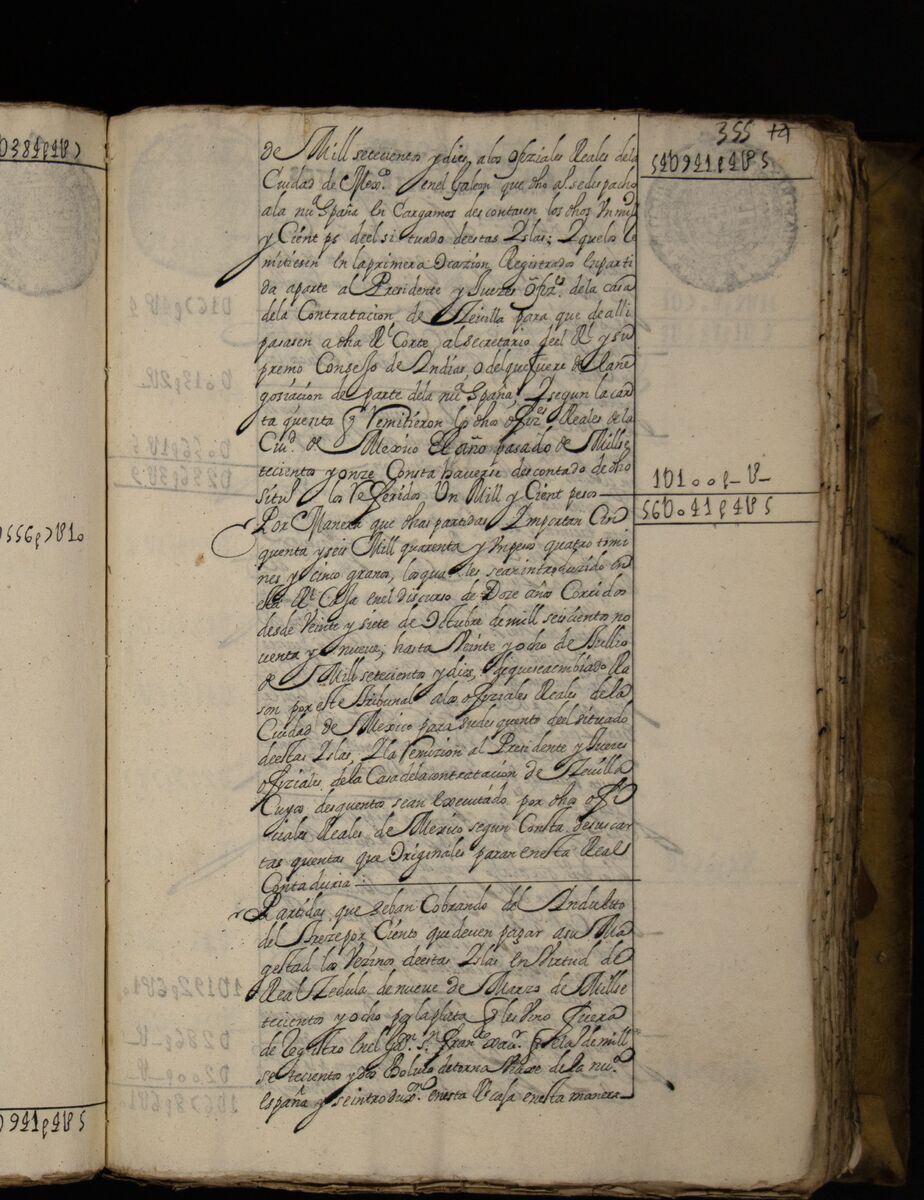 355
de Mill setecientos y diez, a los ofiziales Reales dela
Ciudad de Mexco. en el Galeon que dho año se despacho
ala nua España En Cargamos descontasen los dhos Un mill
y Cient ps de el situado destas Yslas; Y que los Re
mitiesen En la primera Ocazion Registrados en parti
da aparte al Precidente y Juezes ofizs. de la casa
dela Contratacion de Sevilla para que de alli
pasasen a dha Rl Corte, al secretario del Rl y su
premo Consejo de Yndias, o del que fuere de la ne
gosiacion de parte dela nua España; Y segun la car
ta quenta q Remitieron los dhos ofizs Reales de la
Ciud. de Mexico El año pasado de Mill se
tecientos y onze Consta haverse descontado de dho
situdo los Referidos Un Mill y Cient pesos
Por Manera que dhas partidas Ymportan Cin
quenta y seis Mill quarenta y Un pesos quatro tomi
nes y cinco granos, los quales se an introduzido en
esta Rl Caja en el discurso de Doze años Corridos
desde Veinte y siete de Octubre de mill seiscientos no
venta y nueve, hasta Veinte y ocho de Jullio
de Mill setecientos y diez, de que se a embiado Ra
son por este tribunal a los ofiziales Reales de la
Ciudad de Mexico para su desquento del situado
de estas Yslas, Y la Remizion al Presidente y Juezes
ofiziales de la Casa dela contratacion de Sevilla
Cuyos desquentos se an Executado por dhos ofi
ciales Reales de Mexico segun Consta de sus car
tas quentas que Originales paran en esta Real
Contaduria
Partidas que se ban Cobrando del Yndulto
del Treze por Ciento que deven pagar a su Ma
gestad los Vezinos de estas Yslas en Virtud de
Real Zedula de nueve de Marzo de Mill se
tecientos y ocho por la plata q les vino fuera
de registro En el Gn. Sn Franco Xavr. q el a de mill
setecientos y dos Bolvio de torna Viaxe de la nua.
españa y se introduxn. en esta Rl caja en esta manera